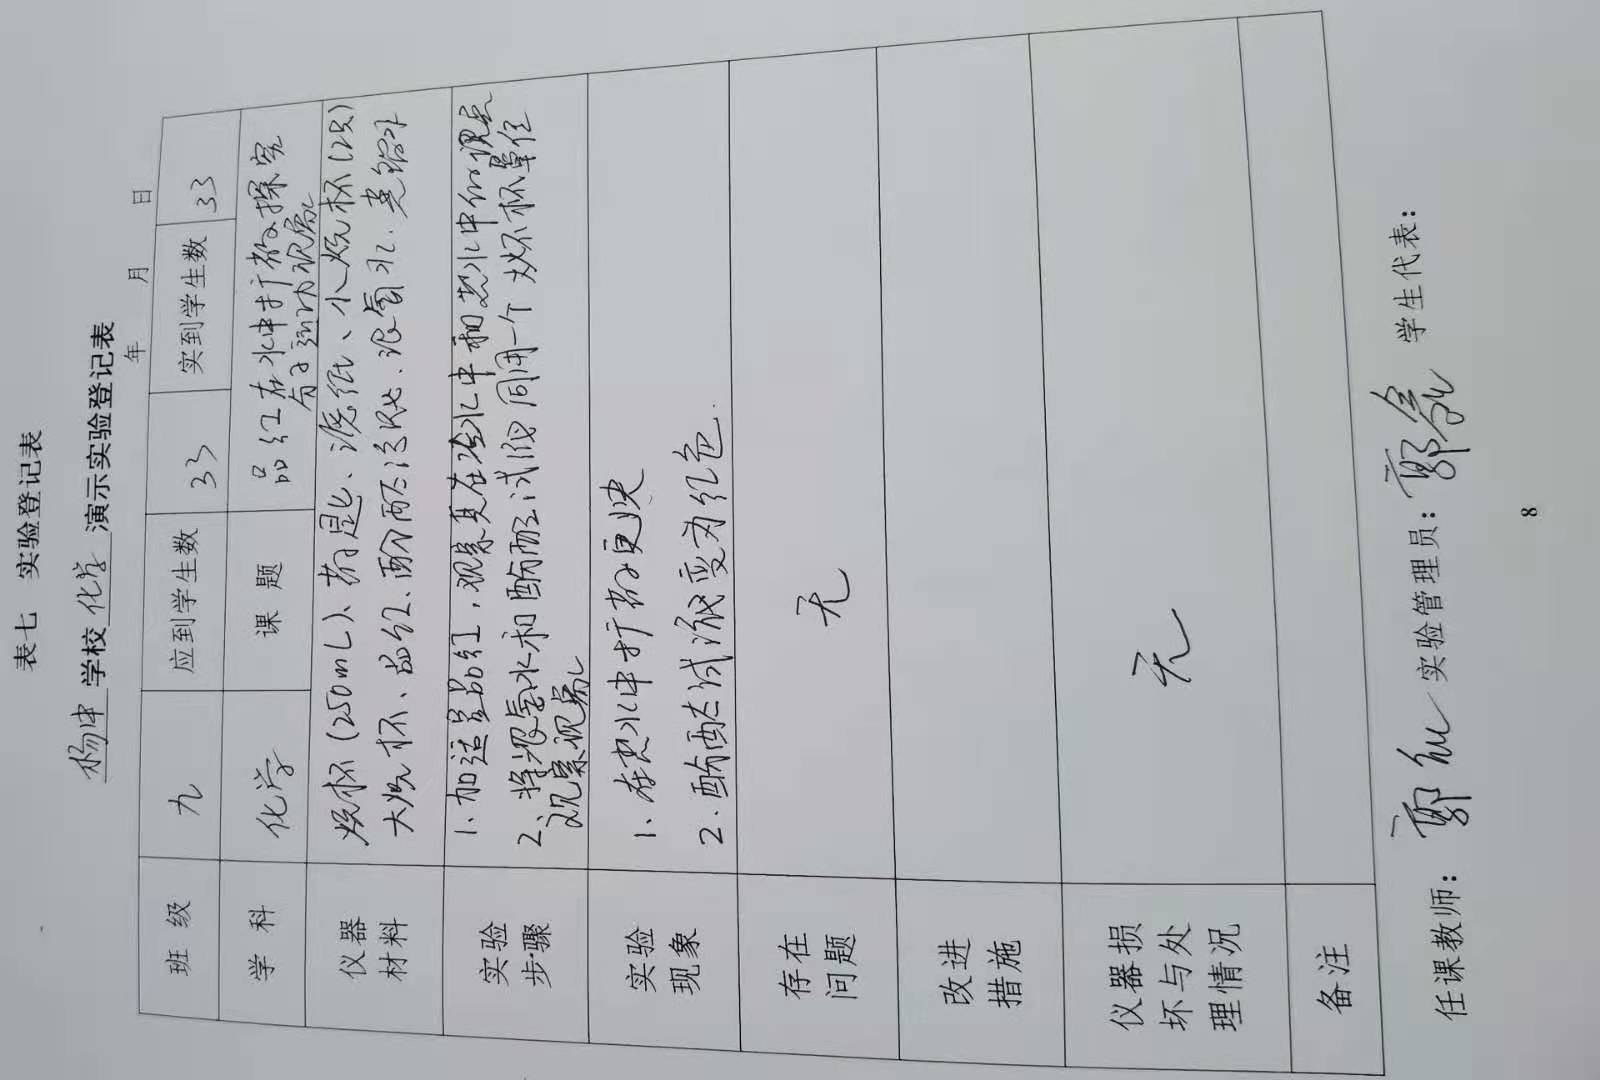 表七 实验登记表
杨中 学校 化学 演示实验登记表
年 月 日
班级 九 应到学生数 33 实到学生数 33
学科 化学 课题 品红在水中扩散探究
分子运动现象
仪器材料 烧杯(250mL)、药匙、滤纸、小烧杯(2只)
大烧杯、品红、酚酞溶液、浓氨水、蒸馏水
实验步骤 1.加适量品红,观察其在冷水中和热水中的现象
2.将浓氨水和酚酞试液同用一个大烧杯罩住
观察现象
实验现象 1.在热水中扩散更快
2.酚酞试液变为红色.
存在问题 无
改进措施
仪器损坏与处理情况 无
备注
任课教师: 郭 实验管理员: 郭 学生代表:
8